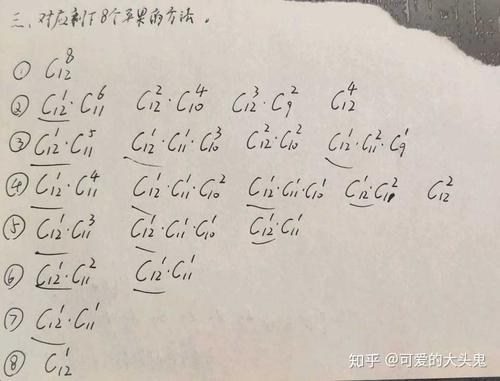 三、对应剩下8个苹果的方法。
① C₁₂⁸
② C₁₂¹·C₁₁⁶ C₁₂²·C₁₀⁴ C₁₂³·C₉² C₁₂⁴
③ C₁₂¹·C₁₁⁵ C₁₂¹·C₁₁¹·C₁₀³ C₁₂²·C₁₀² C₁₂¹·C₁₁²·C₉¹
④ C₁₂¹·C₁₁⁴ C₁₂¹·C₁₁¹·C₁₀² C₁₂¹·C₁₁¹·C₁₀¹ C₁₂¹·C₁₁² C₁₂²
⑤ C₁₂¹·C₁₁³ C₁₂¹·C₁₁¹·C₁₀¹ C₁₂¹·C₁₁¹
⑥ C₁₂¹·C₁₁² C₁₂¹·C₁₁¹
⑦ C₁₂¹·C₁₁¹
⑧ C₁₂¹
知乎 @可爱的大头鬼